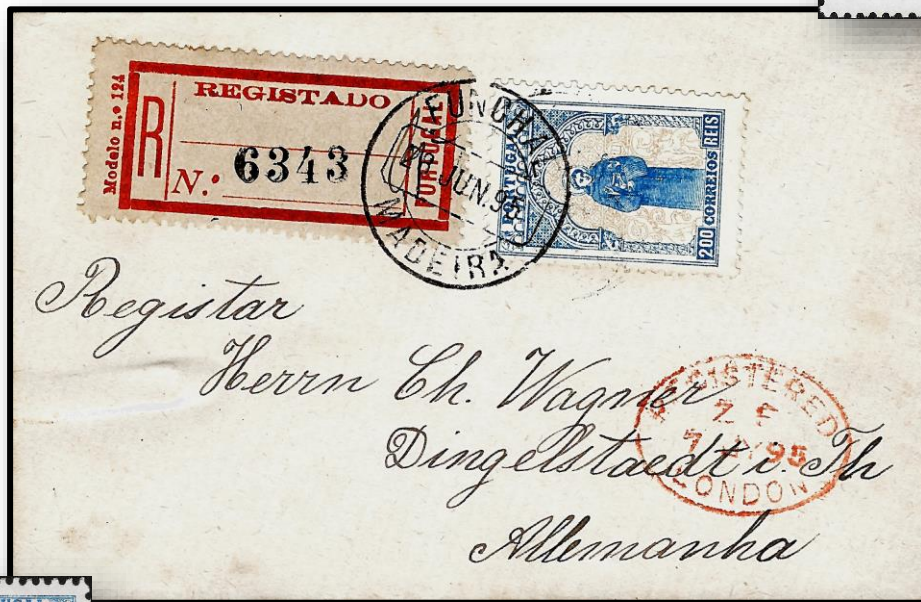 Modelo n.º 124
R
REGISTADO
N.º 6343
PORTUGAL
FUNCHAL
JUN. 95
MADEIRA
PORTUGAL
200 CORREIOS REIS
Registar
Herrn Ch. Wagner
Dingelstaedt i. Th
Allemanha
REGISTERED
7 95
LONDON